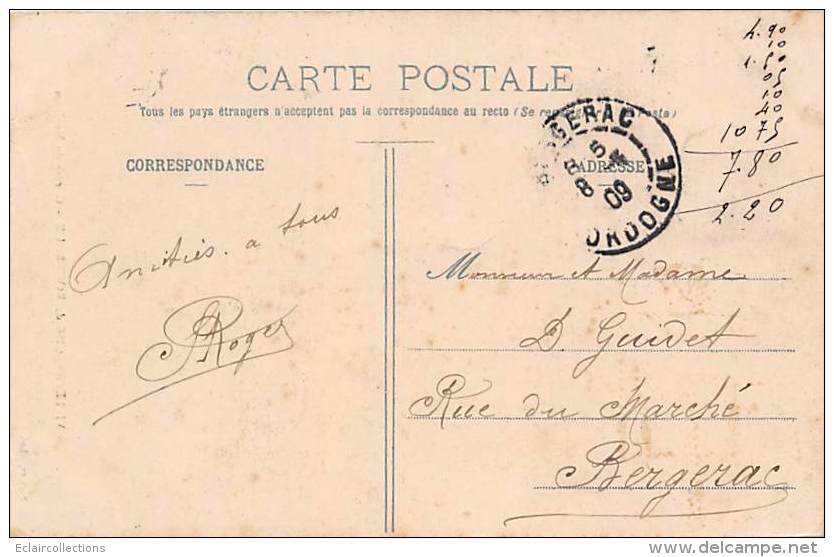 CARTE POSTALE
Tous les pays étrangers n'acceptent pas la correspondance au recto (Se
CORRESPONDANCE
ADRESSE
BERGERAC
DORDOGNE
09
4.90
10
40
10 75
7.80
2.20
Amitiés. a tous
Roger
Monsieur et Madame
D. Guidet
Rue du Marché
Bergerac
Eclaircollections
© delcampe.net